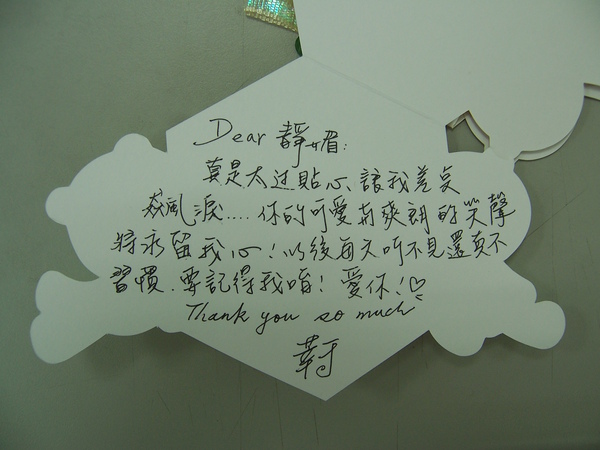 Dear 靜媚:
真是太过貼心、讓我差点
猋風淚.... 你的可愛和爽朗的笑聲
将永留我心! 以後每天听不見還真不
習慣. 要記得我唷! 愛你!♡
Thank you so much